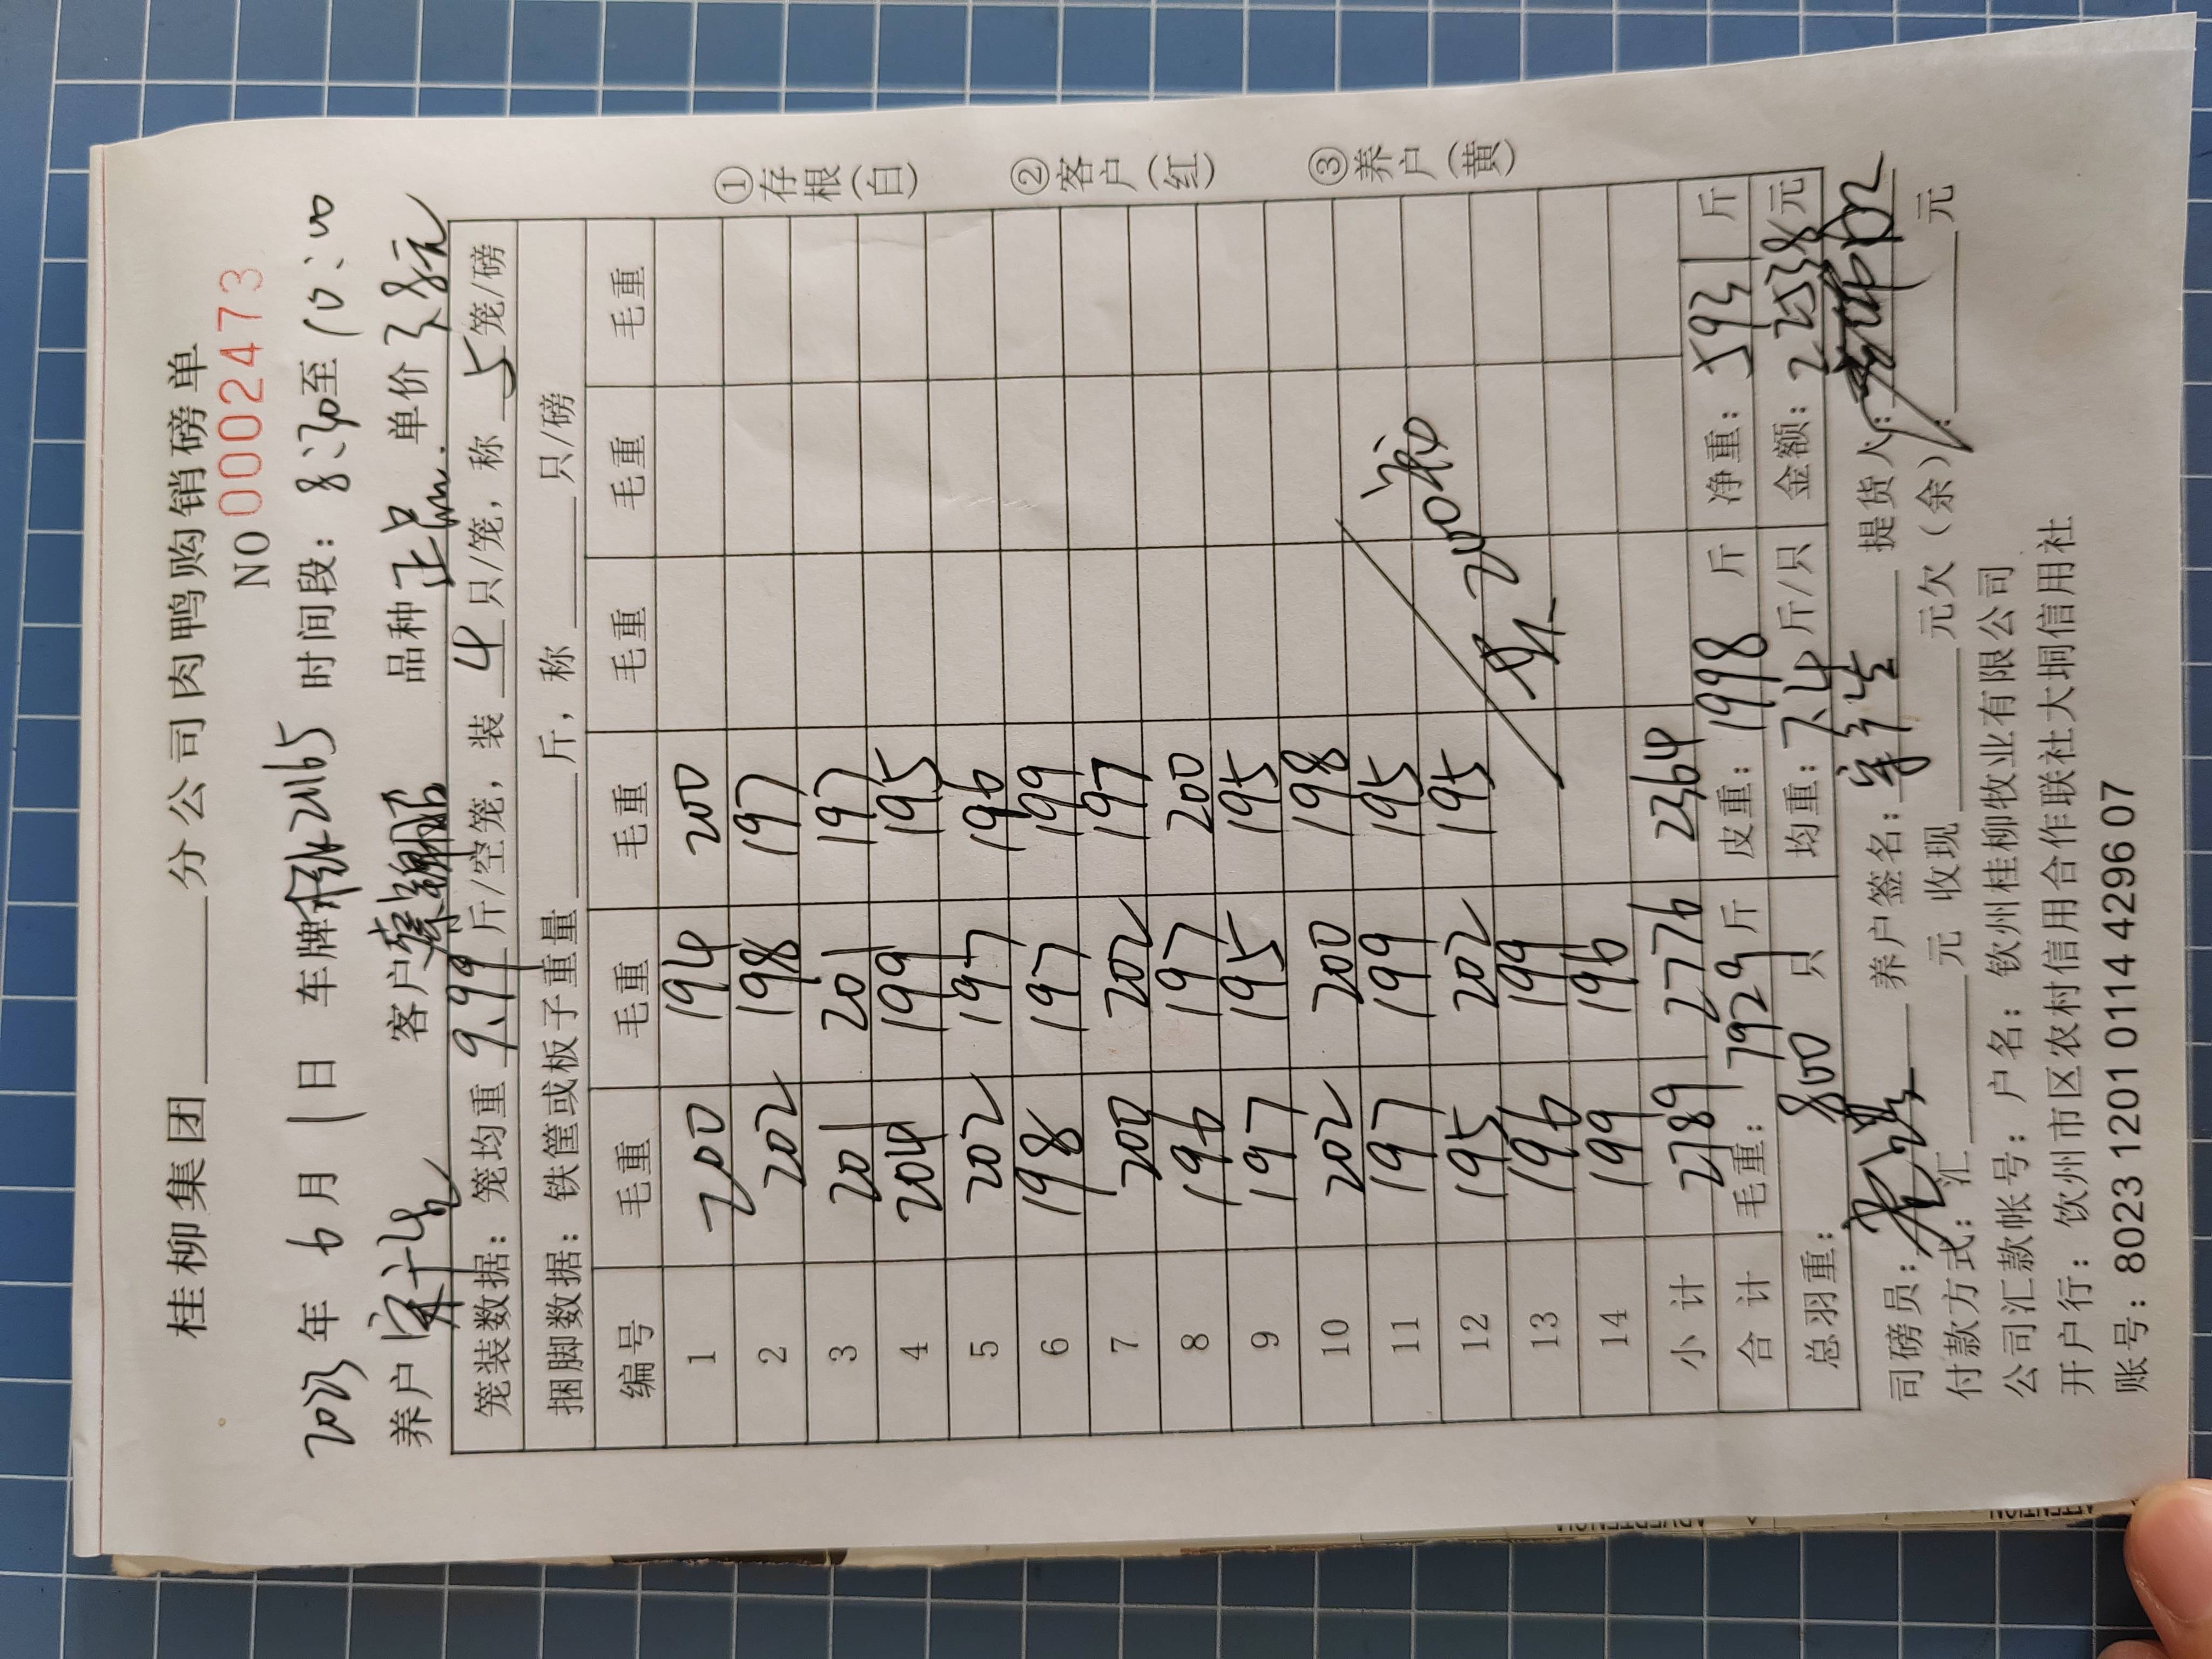 桂柳集团______分公司肉鸭购销磅单
NO 0002473
2023年 6月 1日 车牌 2165 时间段：8:30至10:00
养户 客户 品种 正品 单价 3.8元
笼装数据：笼均重 9.99 斤/空笼，装 4 只/笼，称 5 笼/磅
捆脚数据：铁筐或板子重量______斤，称______只/磅
编号 毛重 毛重 毛重 毛重 毛重 毛重
1 200 194 200
2 202 198 197
3 201 201 197
4 204 199 195
5 202 197 196
6 198 197 199
7 200 202 197
8 196 197 200
9 197 195 195
10 202 200 198
11 197 199 195
12 195 202 195
13 196 199
14 199 196
200
小计 2789 2776 2364
合计 毛重：7929斤 皮重：1998斤 净重：5931斤
总羽重：800 只 均重：7.4斤/只 金额：22538元
司磅员： 养户签名： 提货人：
付款方式：汇______元 收现______元欠（余）：______元
公司汇款帐号：户名：钦州桂柳牧业有限公司
开户行：钦州市区农村信用合作联社大垌信用社
账号：8023 1201 0114 4296 07
①存根（白） ②客户（红） ③养户（黄）